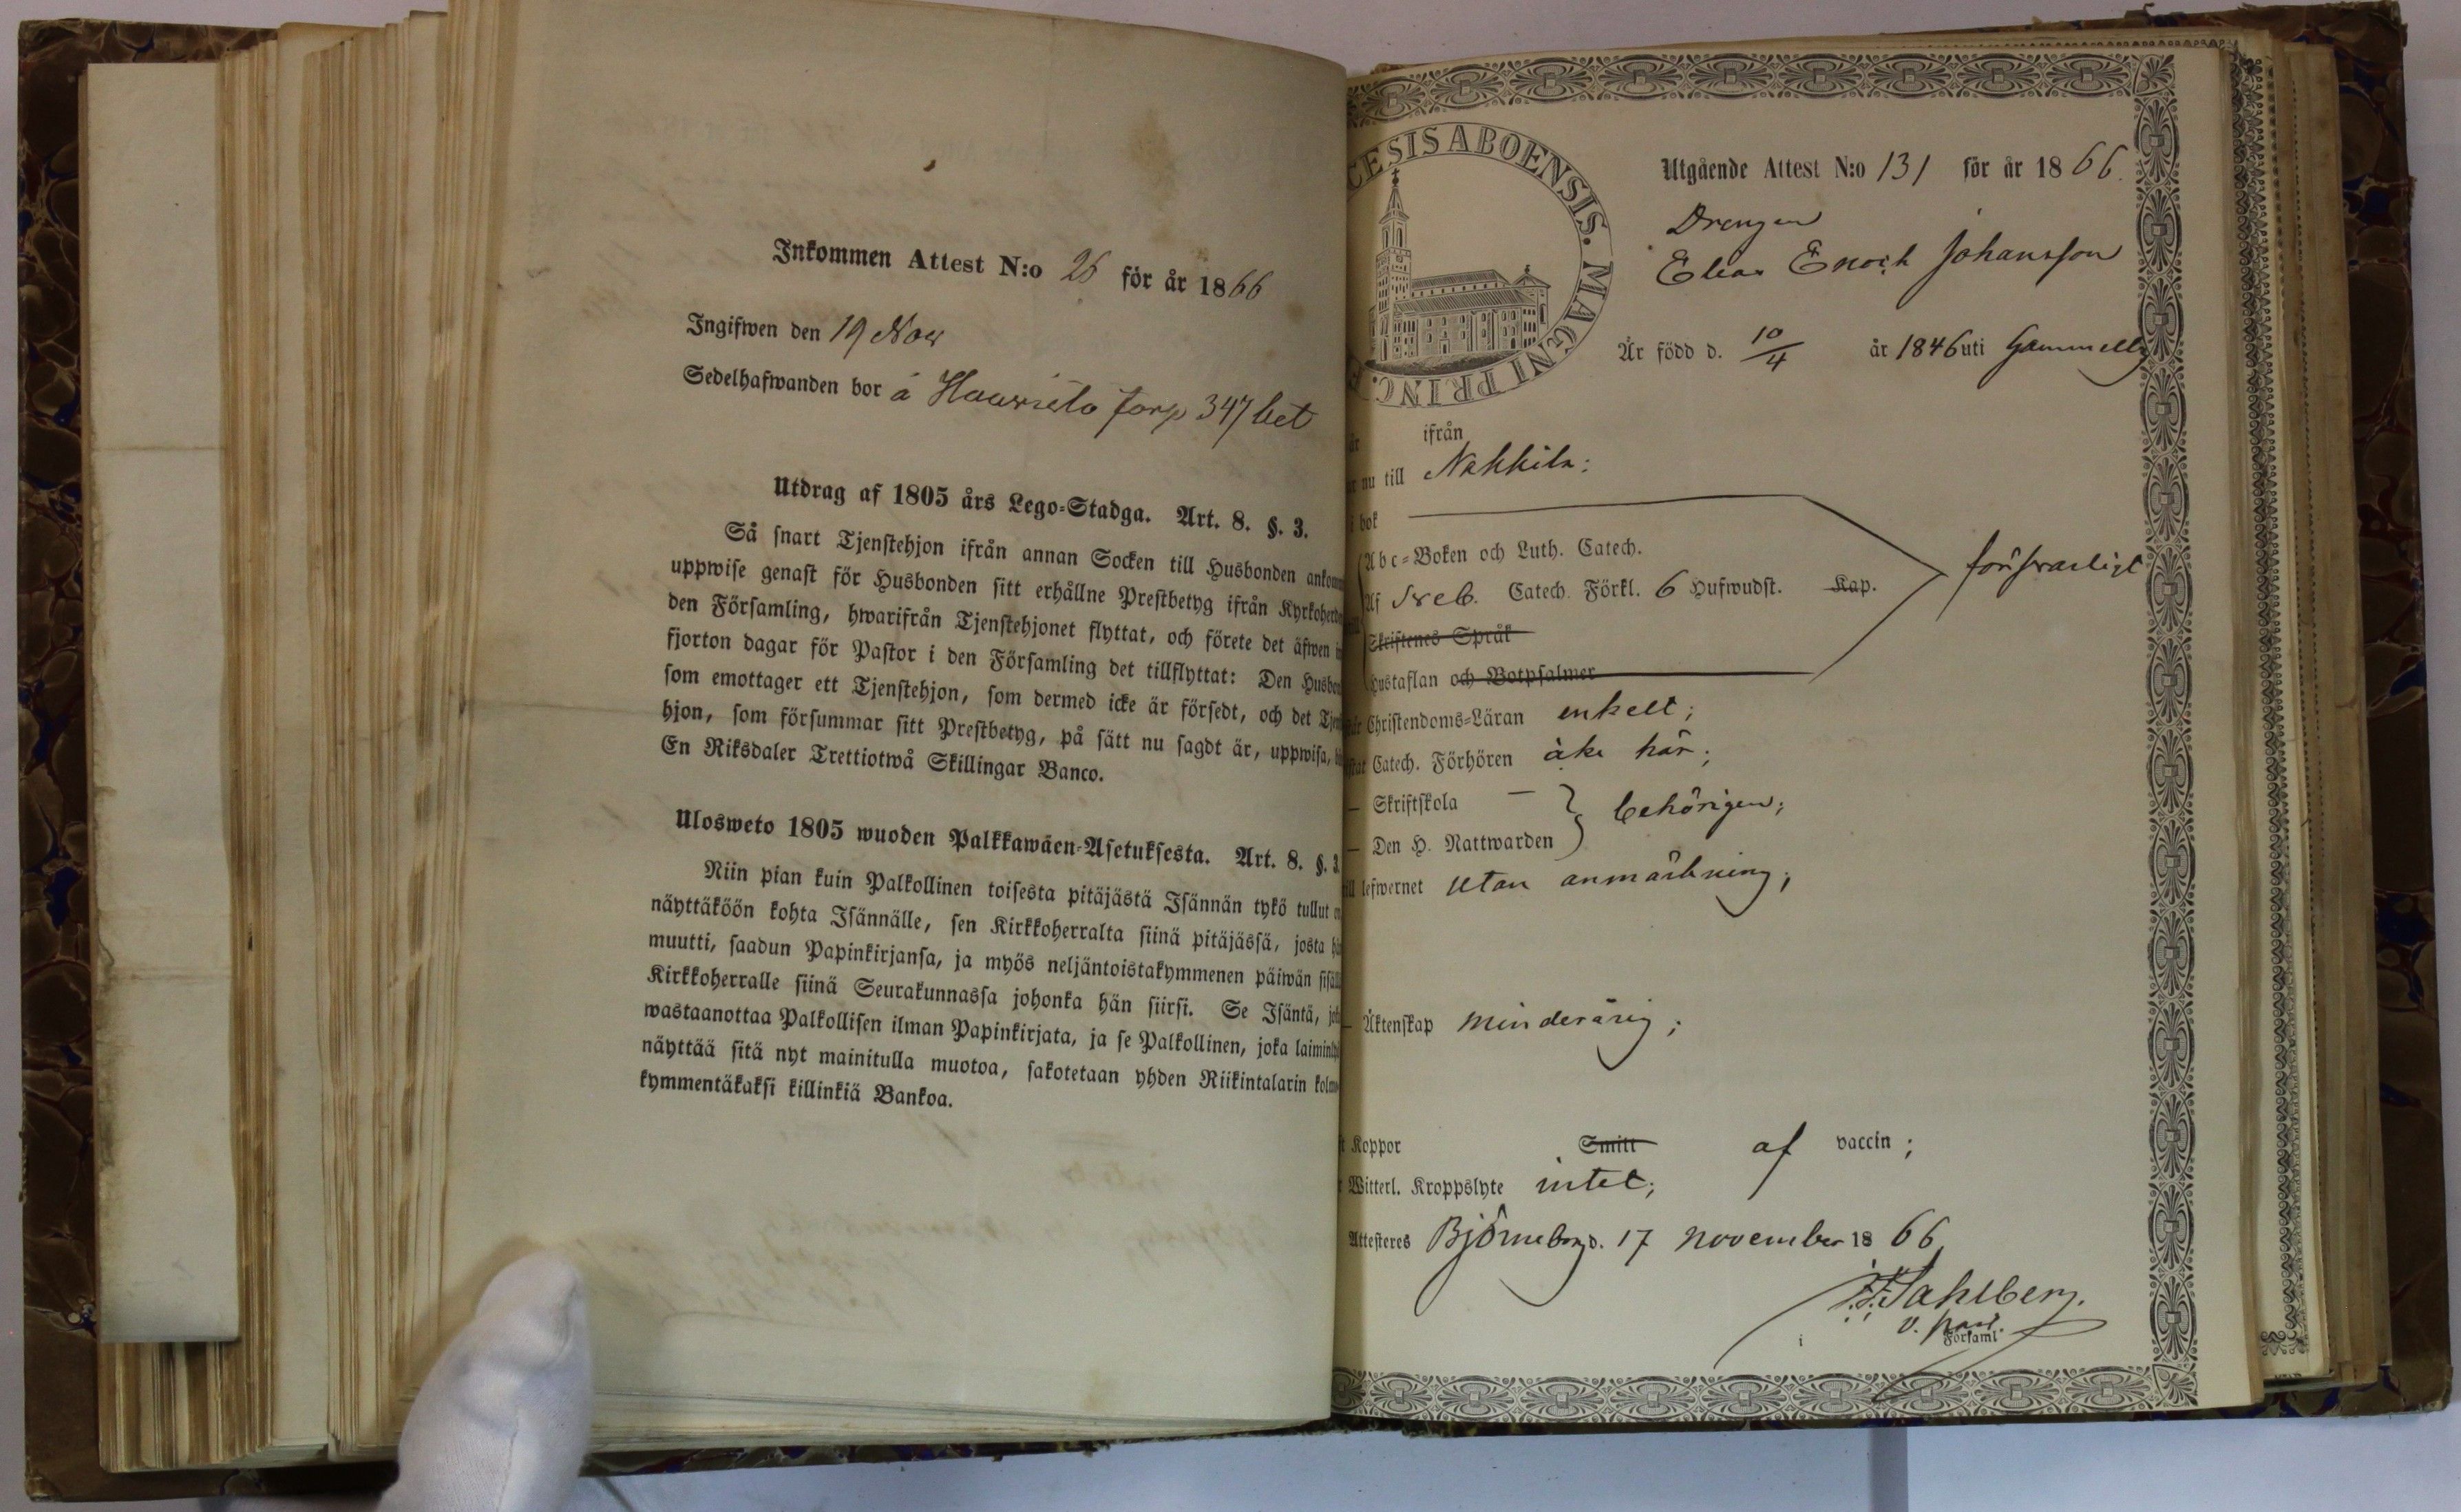 Inkommen Attest N:o 26 för år 1866
Ingifwen den 19 Nov
Sedelhafwanden bor å torp 347 bet
Utdrag af 1805 års Lego-Stadga. Art. 8. §. 3.
Så snart Tjenstehjon ifrån annan Socken till Husbonden
uppwise genast för Husbonden sitt erhållne Prestbetyg ifrån
den Församling, hwarifrån Tjenstehjonet flyttat, och förete det äfwen
fjorton dagar för Pastor i den Församling det tillflyttat: Den
som emottager ett Tjenstehjon, som dermed icke är försedt, och det
hjon, som försummar sitt Prestbetyg, på sätt nu sagdt är, uppwisa,
En Riksdaler Trettiotwå Skillingar Banco.
Ulosweto 1805 wuoden Palkkawäen-Asetuksesta. Art. 8. §. 3.
Niin pian kuin Palkollinen toisesta pitäjästä Isännän tykö tullut
näyttäköön kohta Isännälle, sen Kirkkoherralta siinä pitäjässä, josta
muutti, saadun Papinkirjansa, ja myös neljäntoistakymmenen päiwän
Kirkkoherralle siinä Seurakunnassa johonka hän siirsi. Se Isäntä,
wastaanottaa Palkollisen ilman Papinkirjata, ja se Palkollinen, joka
näyttää sitä nyt mainitulla muotoa, sakotetaan yhden Riikintalarin
kymmentäkaksi killinkiä Bankoa.
CESIS ABOENSIS. MAGNI PRINC.
Utgående Attest N:o 131 för år 1866.
Drengen
Elias Enoch Johansson
Är född d. 10/4 år 1846 uti Gammelby
ifrån
nu till Nakkila:
bok
Abc-Boken och Luth. Catech.
Af Sveb. Catech. Förkl. 6 Hufwudst. Kap.
försvarligt
Skriftenes Språk
Hustaflan och Botpsalmer
Christendoms-Läran enkelt;
Catech. Förhören icke här;
— Skriftskola —
behörigen;
— Den H. Nattwarden
lefwernet utan anmärkning;
— Äktenskap minderårig;
Koppor Smitt af vaccin;
Witterl. Kroppslyte intet;
Attesteres Björneborg d. 17 november 1866
F. Sahlberg.
v. past.
i Församl.